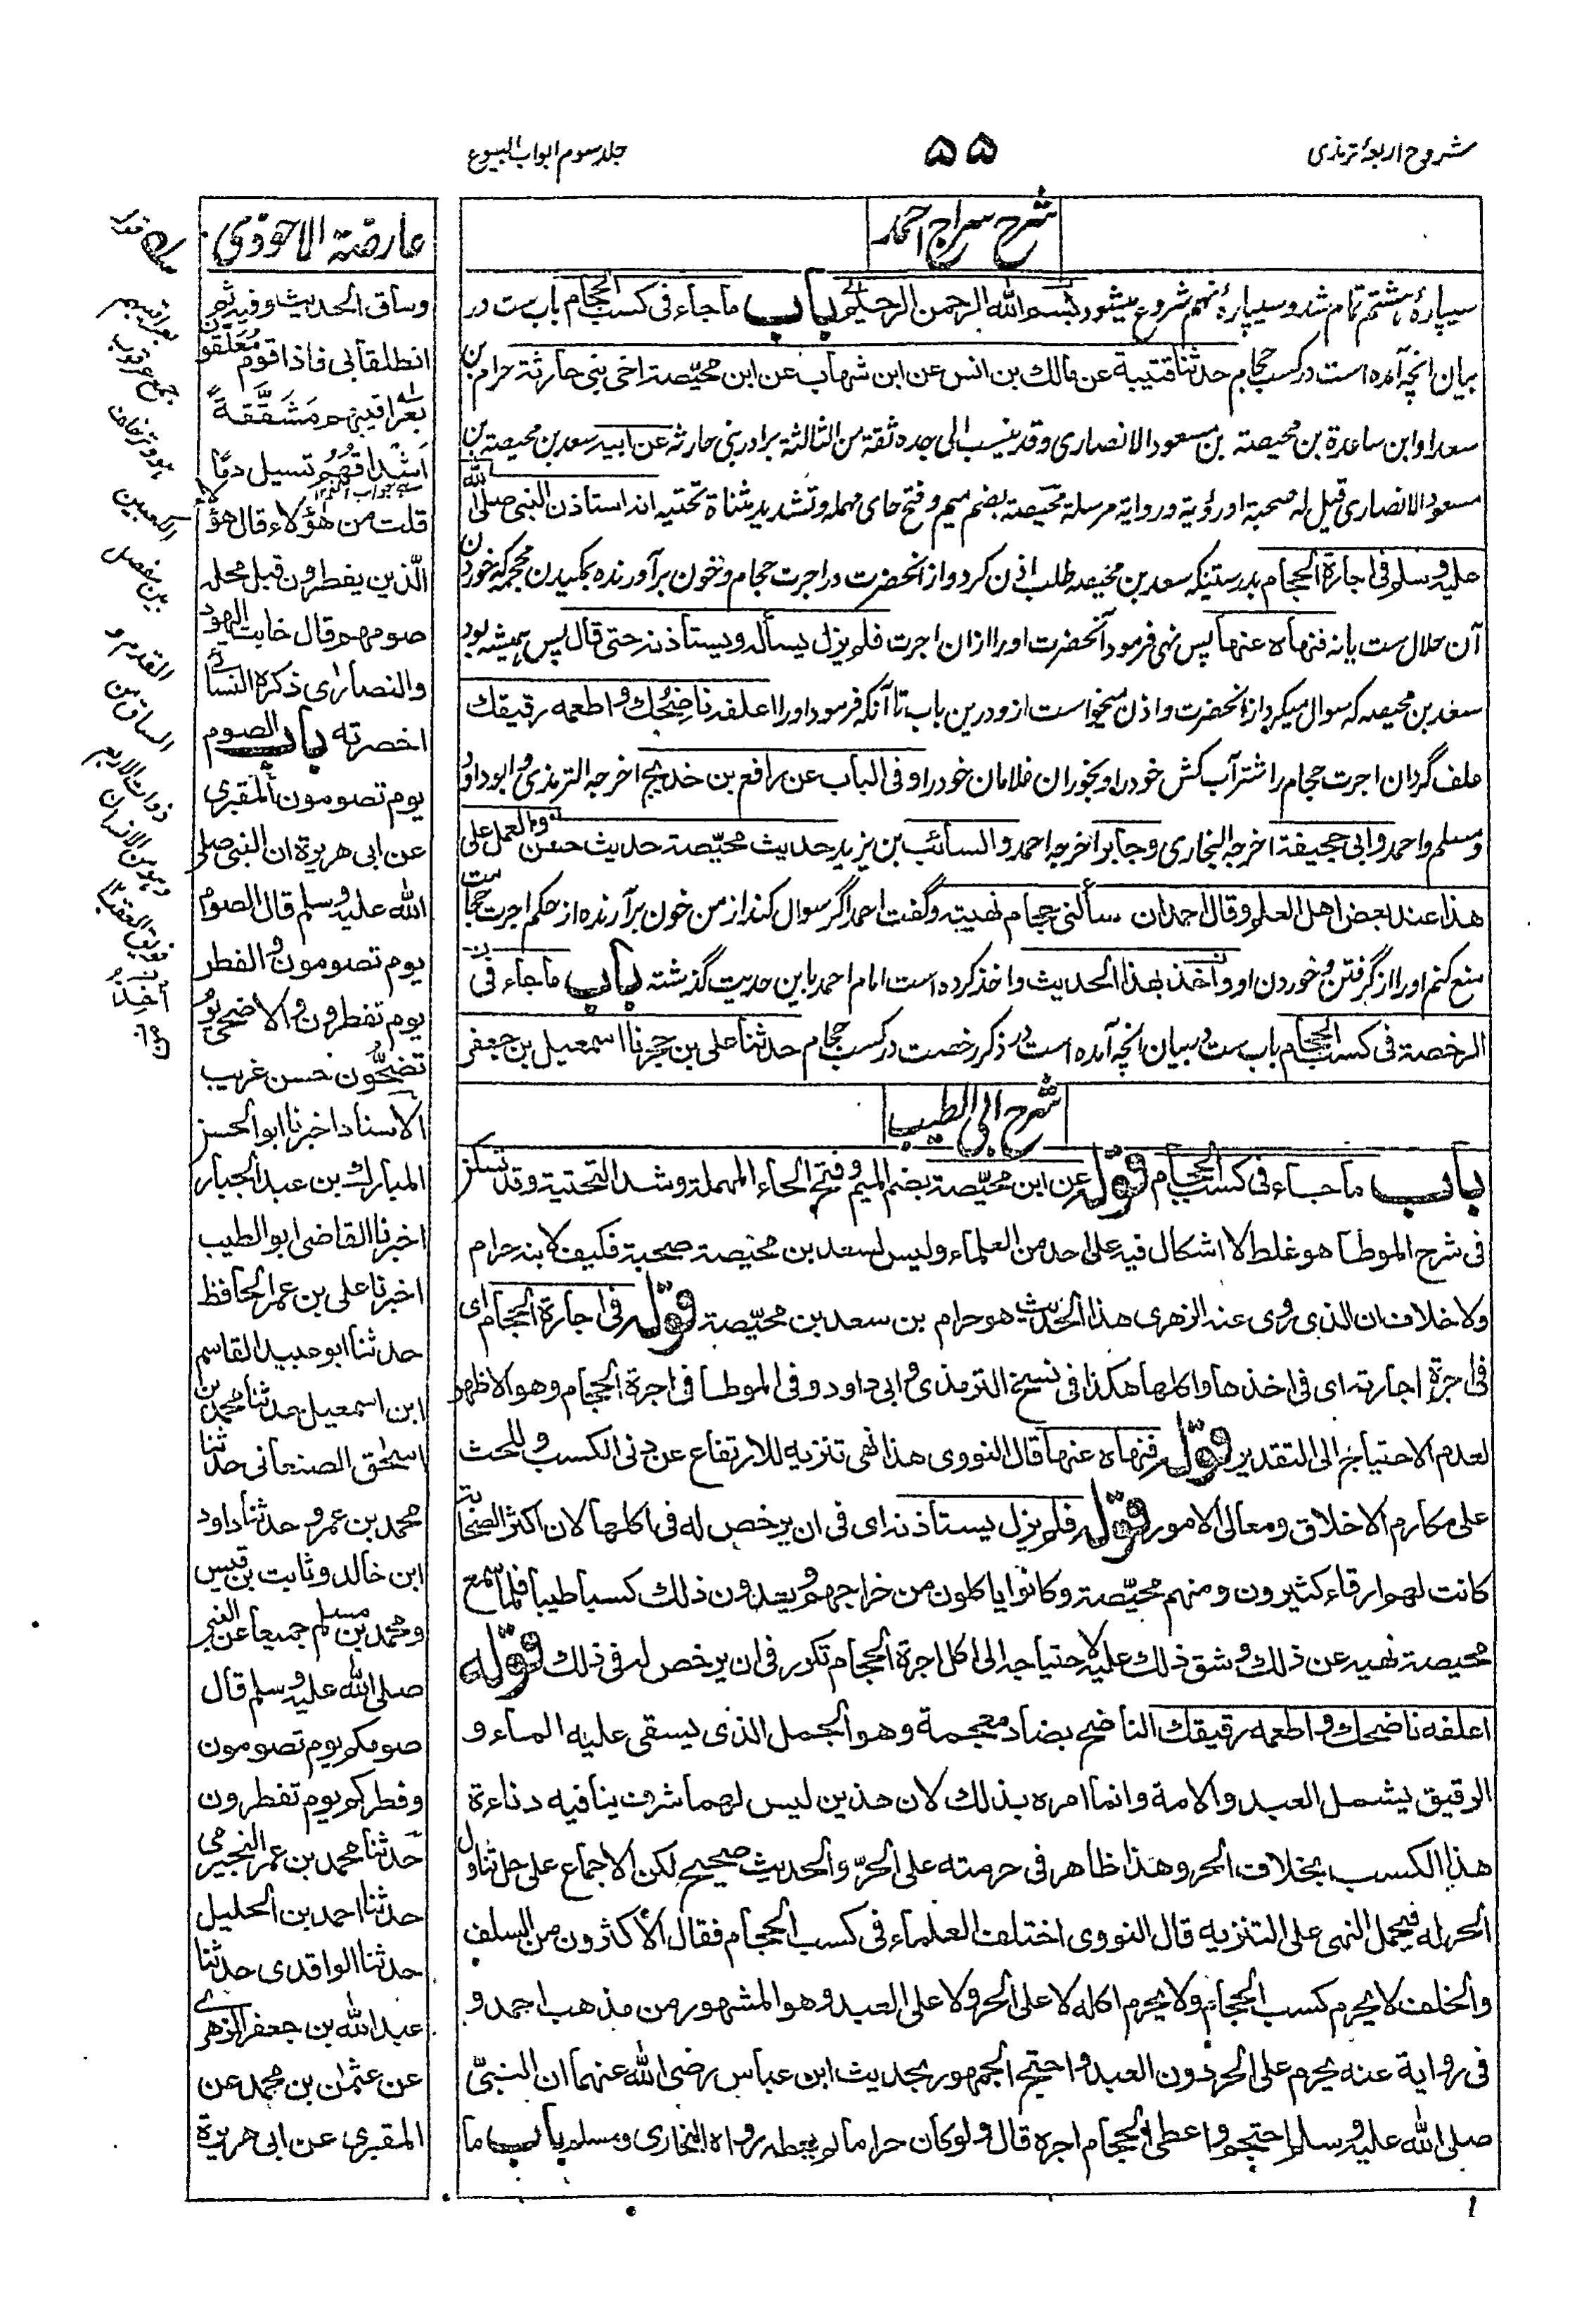 شروح اربعهٔ ترمذی
۵۵
جلد سوم ابواب البیوع
شرح سراج احمد
سیپارهٔ هشتم تمام شد و سیپارهٔ نهم شروع میشود بسم الله الرحمن الرحیم باب ما جاء فی کسب الحجام باب ست در
بیان انچه آمده است در کسب حجام حدثنا قتیبة عن مالك بن انس عن ابن شهاب عن ابن محیّصة اخی بنی حارثة حرام بن
سعد او ابن ساعدة بن محیصة بن مسعود الانصاری وقد ینسب الی جده ثقة من الثالثة برادر بنی حارثه عن ابیه سعد بن محیصة بن
مسعود الانصاری قیل له صحبة او رؤیة وروایة مرسلة محیّصة بضم میم و فتح حای مهمله و تشدید مثناة تحتیه انه استاذن النبی صلی الله
علیه وسلم فی اجارة الحجام بدرستیکه سعد بن محیصه طلب اذن کرد و از آنحضرت در اجرت حجام و خون برآورنده بمکیدن محجمه که خوردن
آن حلال ست یا نه فنهاه عنها پس نهی فرمود آنحضرت او را ازان اجرت فلم یزل یسأله ویستأذنه حتی قال پس همیشه بود
سعد بن محیصه که سوال میکرد از آنحضرت و اذن میخواست ازو درین باب تا آنکه فرمود او را اعلفه ناضحك و اطعمه رقیقك
علف گردان اجرت حجام را شتر آب کش خود را و بخوران غلامان خود را وفی الباب عن رافع بن خدیج اخرجه الترمذی و ابو داود
ومسلم واحمد وابی جحیفة اخرجه البخاری وجابر اخرجه احمد والسائب بن یزید حدیث محیّصة حدیث حسن والعمل علی
هذا عند بعض اهل العلم وقال احمد ان سألنی حجام نهیته وگفت احمد اگر سوال کند از من خون برآرنده از حکم اجرت حجامت
منع کنم او را از گرفتن و خوردن او و اخذ بهذا الحدیث واخذ کرده است امام احمد باین حدیث گذشته باب ما جاء فی
الرخصة فی کسب الحجام باب ست در بیان انچه آمده است در ذکر رخصت در کسب حجام حدثنا علی بن حجر نا اسمعیل بن جعفر
شرح ابی الطیب
باب ما جاء فی کسب الحجام قوله عن ابن محیّصة بضم المیم وفتح الحاء المهملة وشد التحتیة وقد تسکن
فی شرح الموطا هو غلط لا اشکال فیه علی احد من العلماء ولیس لسعد بن محیصة صحبة فکیف لابنه حرام
ولا خلاف ان الذی روی عنه الزهری هذا الحدیث هو حرام بن سعد بن محیّصة قوله فی اجارة الحجام ای
فی اجرة اجارته ای فی اخذها واکلها هکذا فی نسخ الترمذی وابی داود وفی الموطا فی اجرة الحجام وهو الاظهر
لعدم الاحتیاج الی التقدیر قوله فنهاه عنها قال النووی هذا نهی تنزیه للارتفاع عن دنی الکسب وللحث
علی مکارم الاخلاق ومعالی الامور قوله فلم یزل یستاذنه ای فی ان یرخص له فی اکلها لان اکثر الصحابة
کانت لهم ارقاء کثیرون ومنهم محیّصة وکانوا یاکلون من خراجهم ویعدون ذلك کسبا طیبا فلما سمع
محیصة نهیه عن ذلك وشق ذلك علیه لاحتیاجه الی اکل اجرة الحجام تکرر فی ان یرخص له فی ذلك قوله
اعلفه ناضحك واطعمه رقیقك الناضح بضاد معجمة وهو الجمل الذی یسقی علیه الماء و
الرقیق یشمل العبد والامة وانما امره بذلك لان هذین لیس لهما شرف ینافیه دناءة
هذا الکسب بخلاف الحر وهذا ظاهر فی حرمته علی الحرّ والحدیث صحیح لکن الاجماع علی حل تناول
الحر له فیحمل النهی علی التنزیه قال النووی اختلف العلماء فی کسب الحجام فقال الأکثرون من السلف
والخلف لا یحرم کسب الحجام ولا یحرم اکله لا علی الحر ولا علی العبد وهو المشهور من مذهب احمد و
فی روایة عنه یحرم علی الحر دون العبد واحتج الجمهور بحدیث ابن عباس رضی الله عنهما ان النبیّ
صلی الله علیه وسلم احتجم واعطی الحجام اجره قال ولو کان حراما لم یعطه رواه البخاری ومسلم باب ما
عارضة الاحوذی
وساق الحدیث وفیه ثم
انطلقا بی فاذا قوم معلقون
بعراقیبهم مشققة
اشداقهم تسیل دمًا
قلت من هؤلاء قال هؤلاء
الّذین یفطرون قبل محلة
صومهم قال خابت الیهود
والنصاری ذکره النسائی
اخصرته باب الصوم
یوم تصومون المقبری
عن ابی هریرة ان النبی صلی
الله علیه وسلم قال الصوم
یوم تصومون والفطر
یوم تفطرون والاضحی یوم
تضحّون حسن غریب
الاسناد اخبرنا ابو الحسن
المبارك بن عبد الجبار
اخبرنا القاضی ابو الطیب
اخبرنا علی بن عمر الحافظ
حدثنا ابو عبید القاسم
ابن اسمعیل حدثنا محمد بن
اسحق الصنعانی حدثنا
محمد بن عمرو حدثنا داود
ابن خالد وثابت بن قیس
ومحمد بن مسلم جمیعا عن النبی
صلی الله علیه وسلم قال
صومکم یوم تصومون
وفطرکم یوم تفطرون
حدثنا محمد بن عمر النجیرمی
حدثنا احمد بن الخلیل
حدثنا الواقدی حدثنا
عبد الله بن جعفر الزهری
عن عثمٰن بن محمد عن
المقبری عن ابی هریرة
بعراقیبهم
جمع عرقوب
هو وتر خلف
الکعبین
بین مفصل
القدم و
الساق من
ذوات الاربع
ومن الانسان
فویق العقب